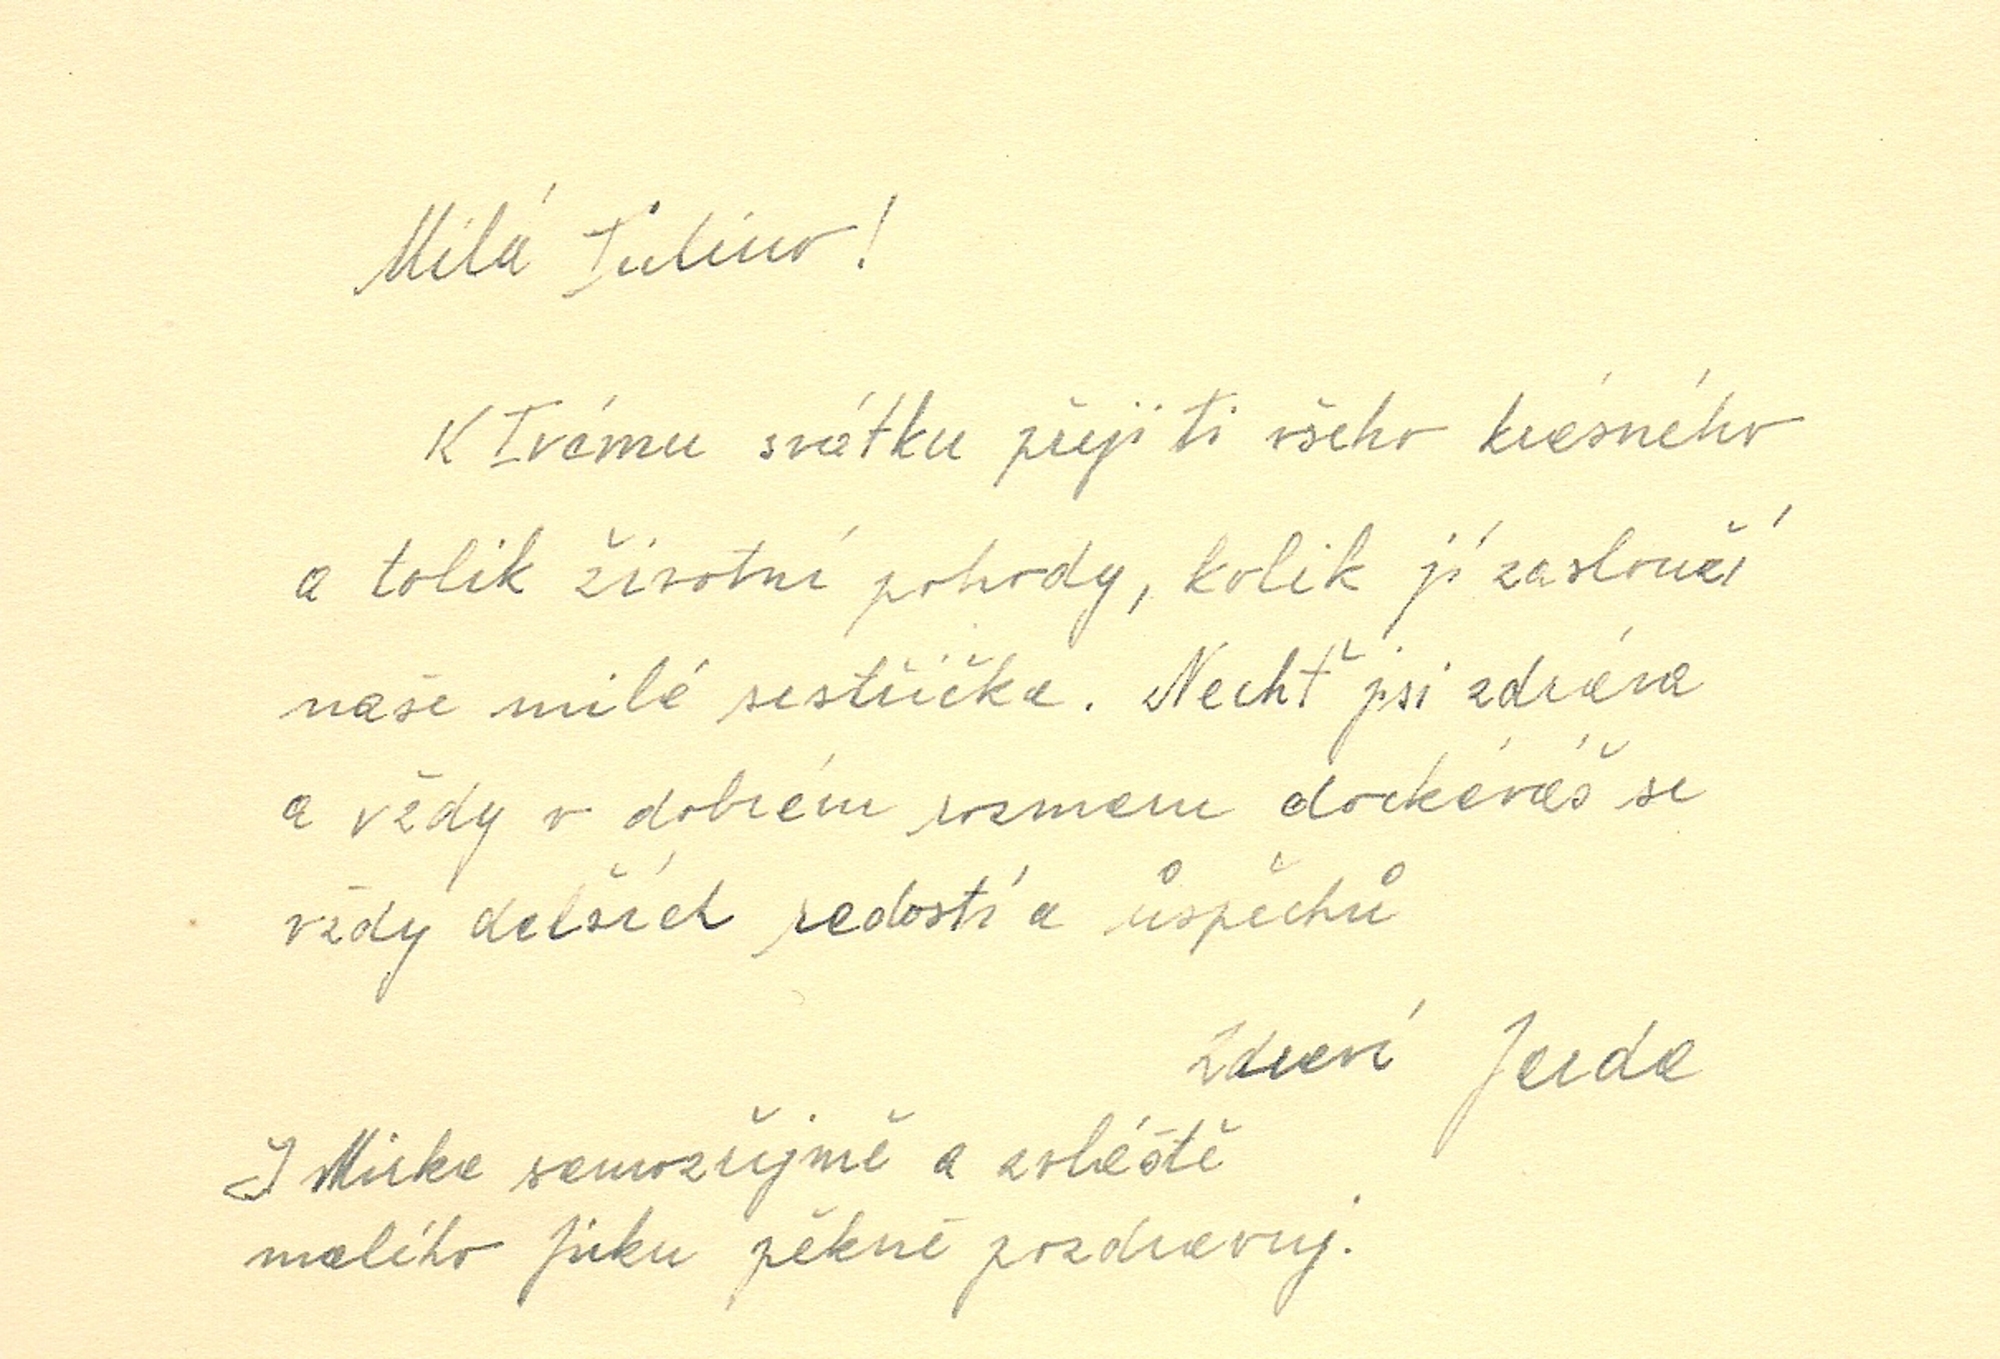 Milá Tulino!
K Tvému svátku přeji ti všeho krásného
a tolik životní pohody, kolik jí zaslouží
naše milá sestřička. Nechť jsi zdráva
a vždy v dobrém rozmaru dočkáváš se
vždy delších radostí a ůspěchů
Zdraví Jarda
I Mirka samozřejmě a zvláště
malého Jirku pěkně pozdravuj.